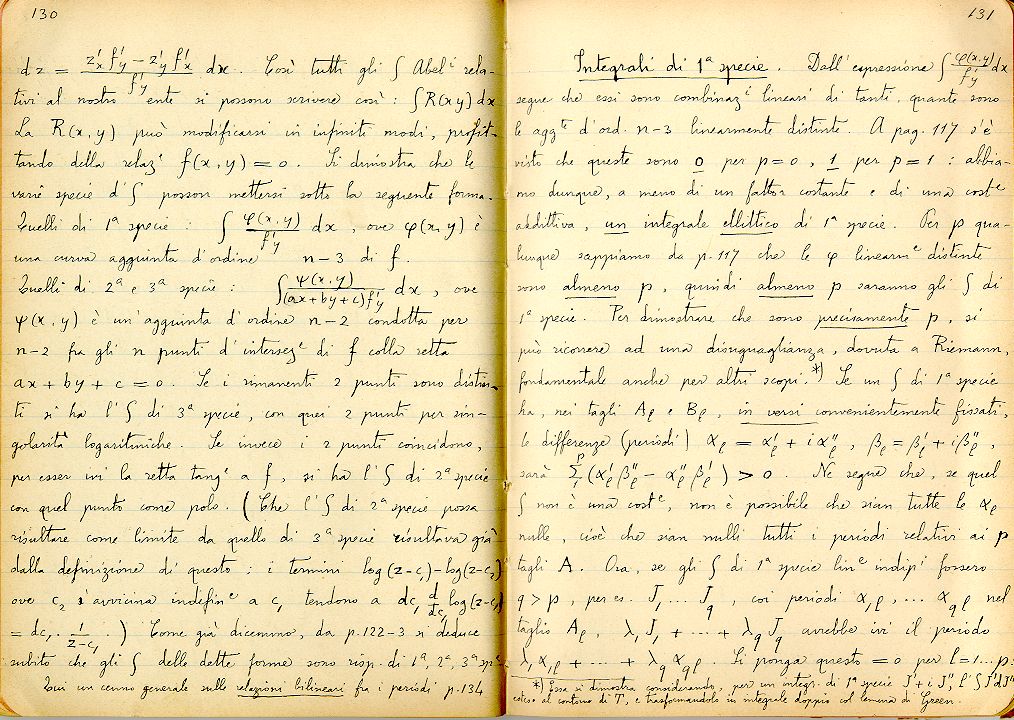 130
dz = (z'ₓ f'ᵧ − z'ᵧ f'ₓ)/f'ᵧ dx. Così tutti gli ∫ Abelⁱ rela-
tivi al nostro ente si possono scrivere così: ∫R(xy)dx
La R(x,y) può modificarsi in infiniti modi, profit-
tando della relazᵉ f(x,y) = 0. Si dimostra che le
varie specie d'∫ posson mettersi sotto la seguente forma.
Quelli di 1ª specie: ∫ φ(x,y)/f'ᵧ dx, ove φ(x,y) è
una curva aggiunta d'ordine n−3 di f.
Quelli di 2ª e 3ª specie: ∫ ψ(x,y)/((ax+by+c)f'ᵧ) dx, ove
ψ(x,y) è un'aggiunta d'ordine n−2 condotta per
n−2 fra gli n punti d'intersezᵉ di f colla retta
ax + by + c = 0. Se i rimanenti 2 punti sono distin-
ti si ha l'∫ di 3ª specie, con quei 2 punti per sin-
golarità logaritmiche. Se invece i 2 punti coincidono,
per esser ivi la retta tangᵉ a f, si ha l'∫ di 2ª specie
con quel punto come polo. (Che l'∫ di 2ª specie possa
risultare come limite da quello di 3ª specie risultava già
dalla definizione di questo: i termini log(z−c₁)−log(z−c₂)
ove c₂ s'avvicina indefinᵉ a c₁ tendono a dc₁ d/dc₁ log(z−c₁)
= dc₁ · 1/(z−c₁).) Come già dicemmo, da p.122-3 si deduce
subito che gli ∫ delle dette forme sono risp. di 1ª, 2ª, 3ª spᵉ
Qui un cenno generale sulle relazioni bilineari fra i periodi p.134
131
Integrali di 1ª specie. Dall'espressione ∫ φ(x,y)/f'ᵧ dx
segue che essi sono combinazⁱ lineari di tanti, quante sono
le aggᵗᵉ d'ord. n−3 linearmente distinte. A pag. 117 s'è
visto che queste sono 0 per p=0, 1 per p=1: abbia-
mo dunque, a meno di un fattor costante e di una costᵉ
additiva, un integrale ellittico di 1ª specie. Per p qua-
lunque sappiamo da p.117 che le φ linearmᵉ distinte
sono almeno p, quindi almeno p saranno gli ∫ di
1ª specie. Per dimostrare che sono precisamente p, si
può ricorrere ad una disuguaglianza, dovuta a Riemann,
fondamentale anche per altri scopi.*) Se un ∫ di 1ª specie
ha, nei tagli Aₗ e Bₗ, in versi convenientemente fissati,
le differenze (periodi) αₗ = α'ₗ + iα''ₗ, βₗ = β'ₗ + iβ''ₗ,
sarà Σ₁ᵖ (α'ₗβ''ₗ − α''ₗβ'ₗ) > 0. Ne segue che, se quel
∫ non è una costᵉ, non è possibile che sian tutte le αₗ
nulle, cioè che sian nulli tutti i periodi relativi ai p
tagli A. Ora, se gli ∫ di 1ª specie linᵉ indipⁱ fossero
q > p, per es. J₁ ... J_q, coi periodi α₁ₗ, .... α_qₗ nel
taglio Aₗ, λ₁J₁ + ··· + λ_qJ_q avrebbe ivi il periodo
λ₁α₁ₗ + ··· + λ_qα_qₗ. Si ponga questo = 0 per l=1...p:
*) Essa si dimostra considerando, per un integr. di 1ª specie J'+iJ'', l'∫J'dJ''
esteso al contorno di T, e trasformandolo in integrale doppio col lemma di Green.